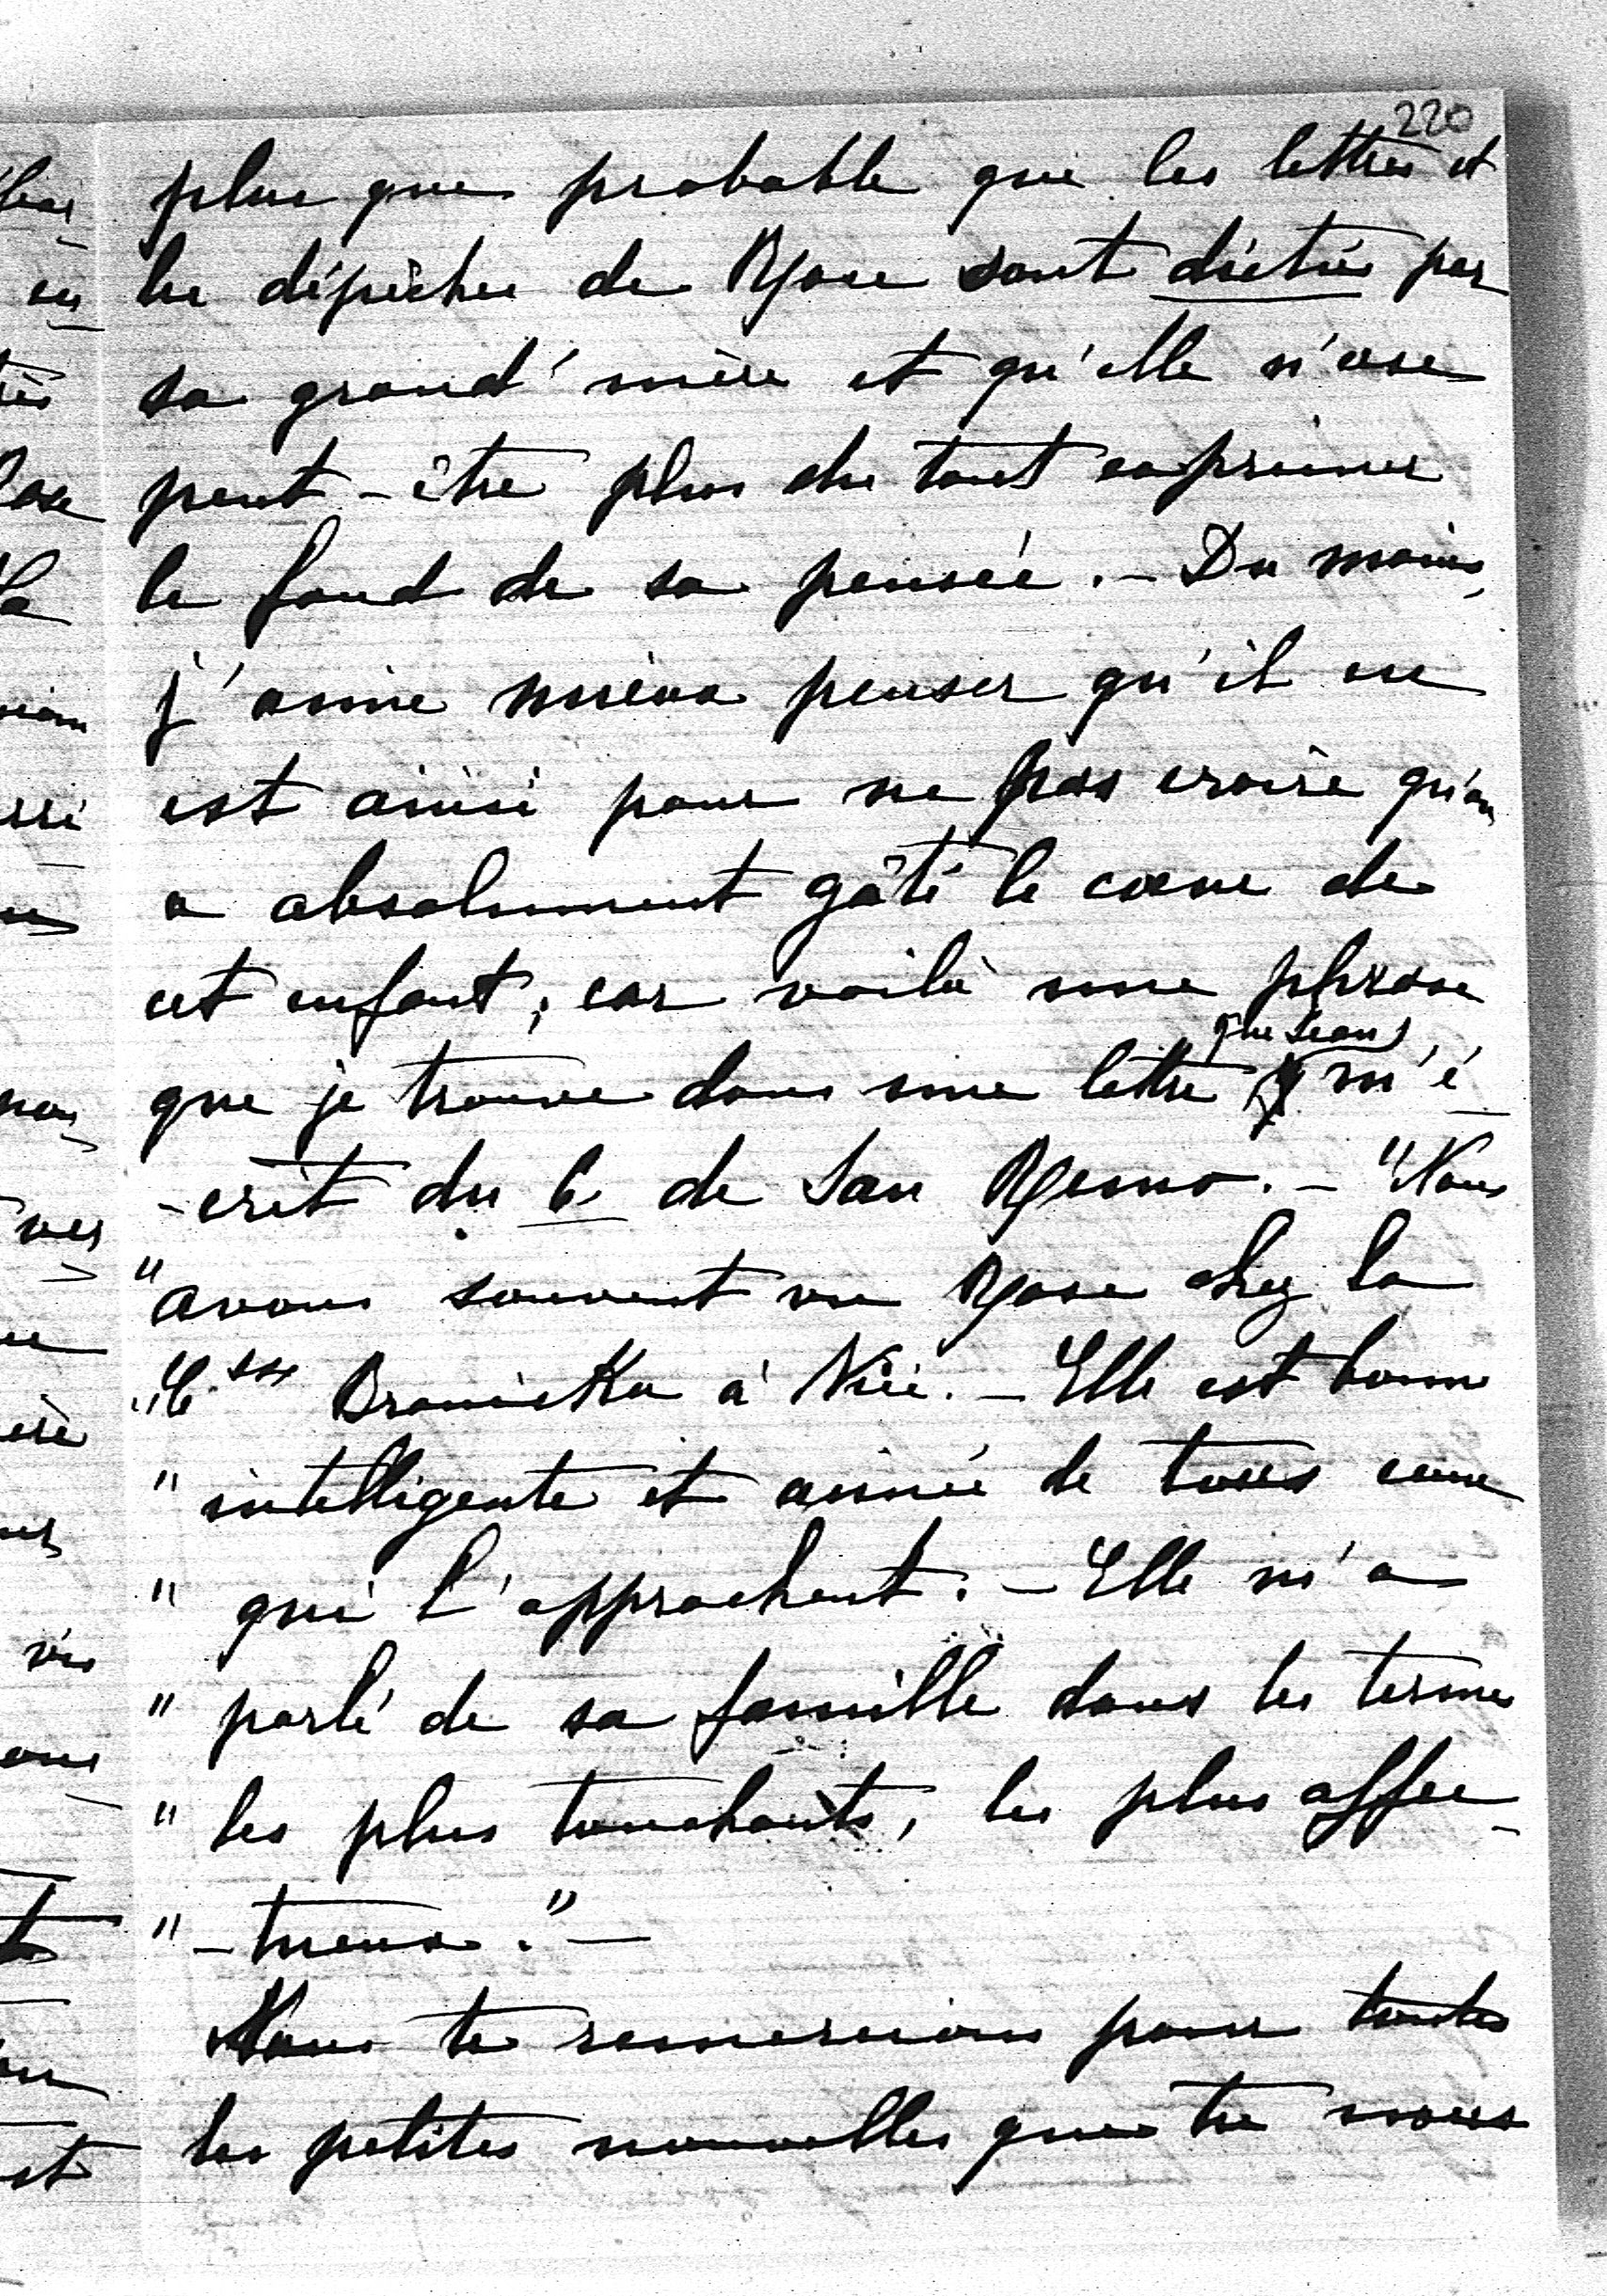 220
plus que probable que les lettres et
les dépêches de Rose sont dictées par
sa grand'mère et qu'elle n'ose
peut-être plus du tout exprimer
le fond de sa pensée. - Du moins,
j'aime mieux penser qu'il en
est ainsi pour ne pas croire qu'on
a absolument gâté le coeur de
cet enfant, car voilà une phrase
que je trouve dans une lettre que Jean m'é
-crit du 6 de San Remo. - "Nous
"avons souvent vu Rose chez la
"Csse Branicka à Nice. - Elle est bonne
"intelligente et aimée de tous ceux
"qui l'approchent. - Elle m'a
"parlé de sa famille dans les termes
"les plus touchants, les plus affec-
"-tueux." -
Nous te remercions pour toutes
les petites nouvelles que tu nous